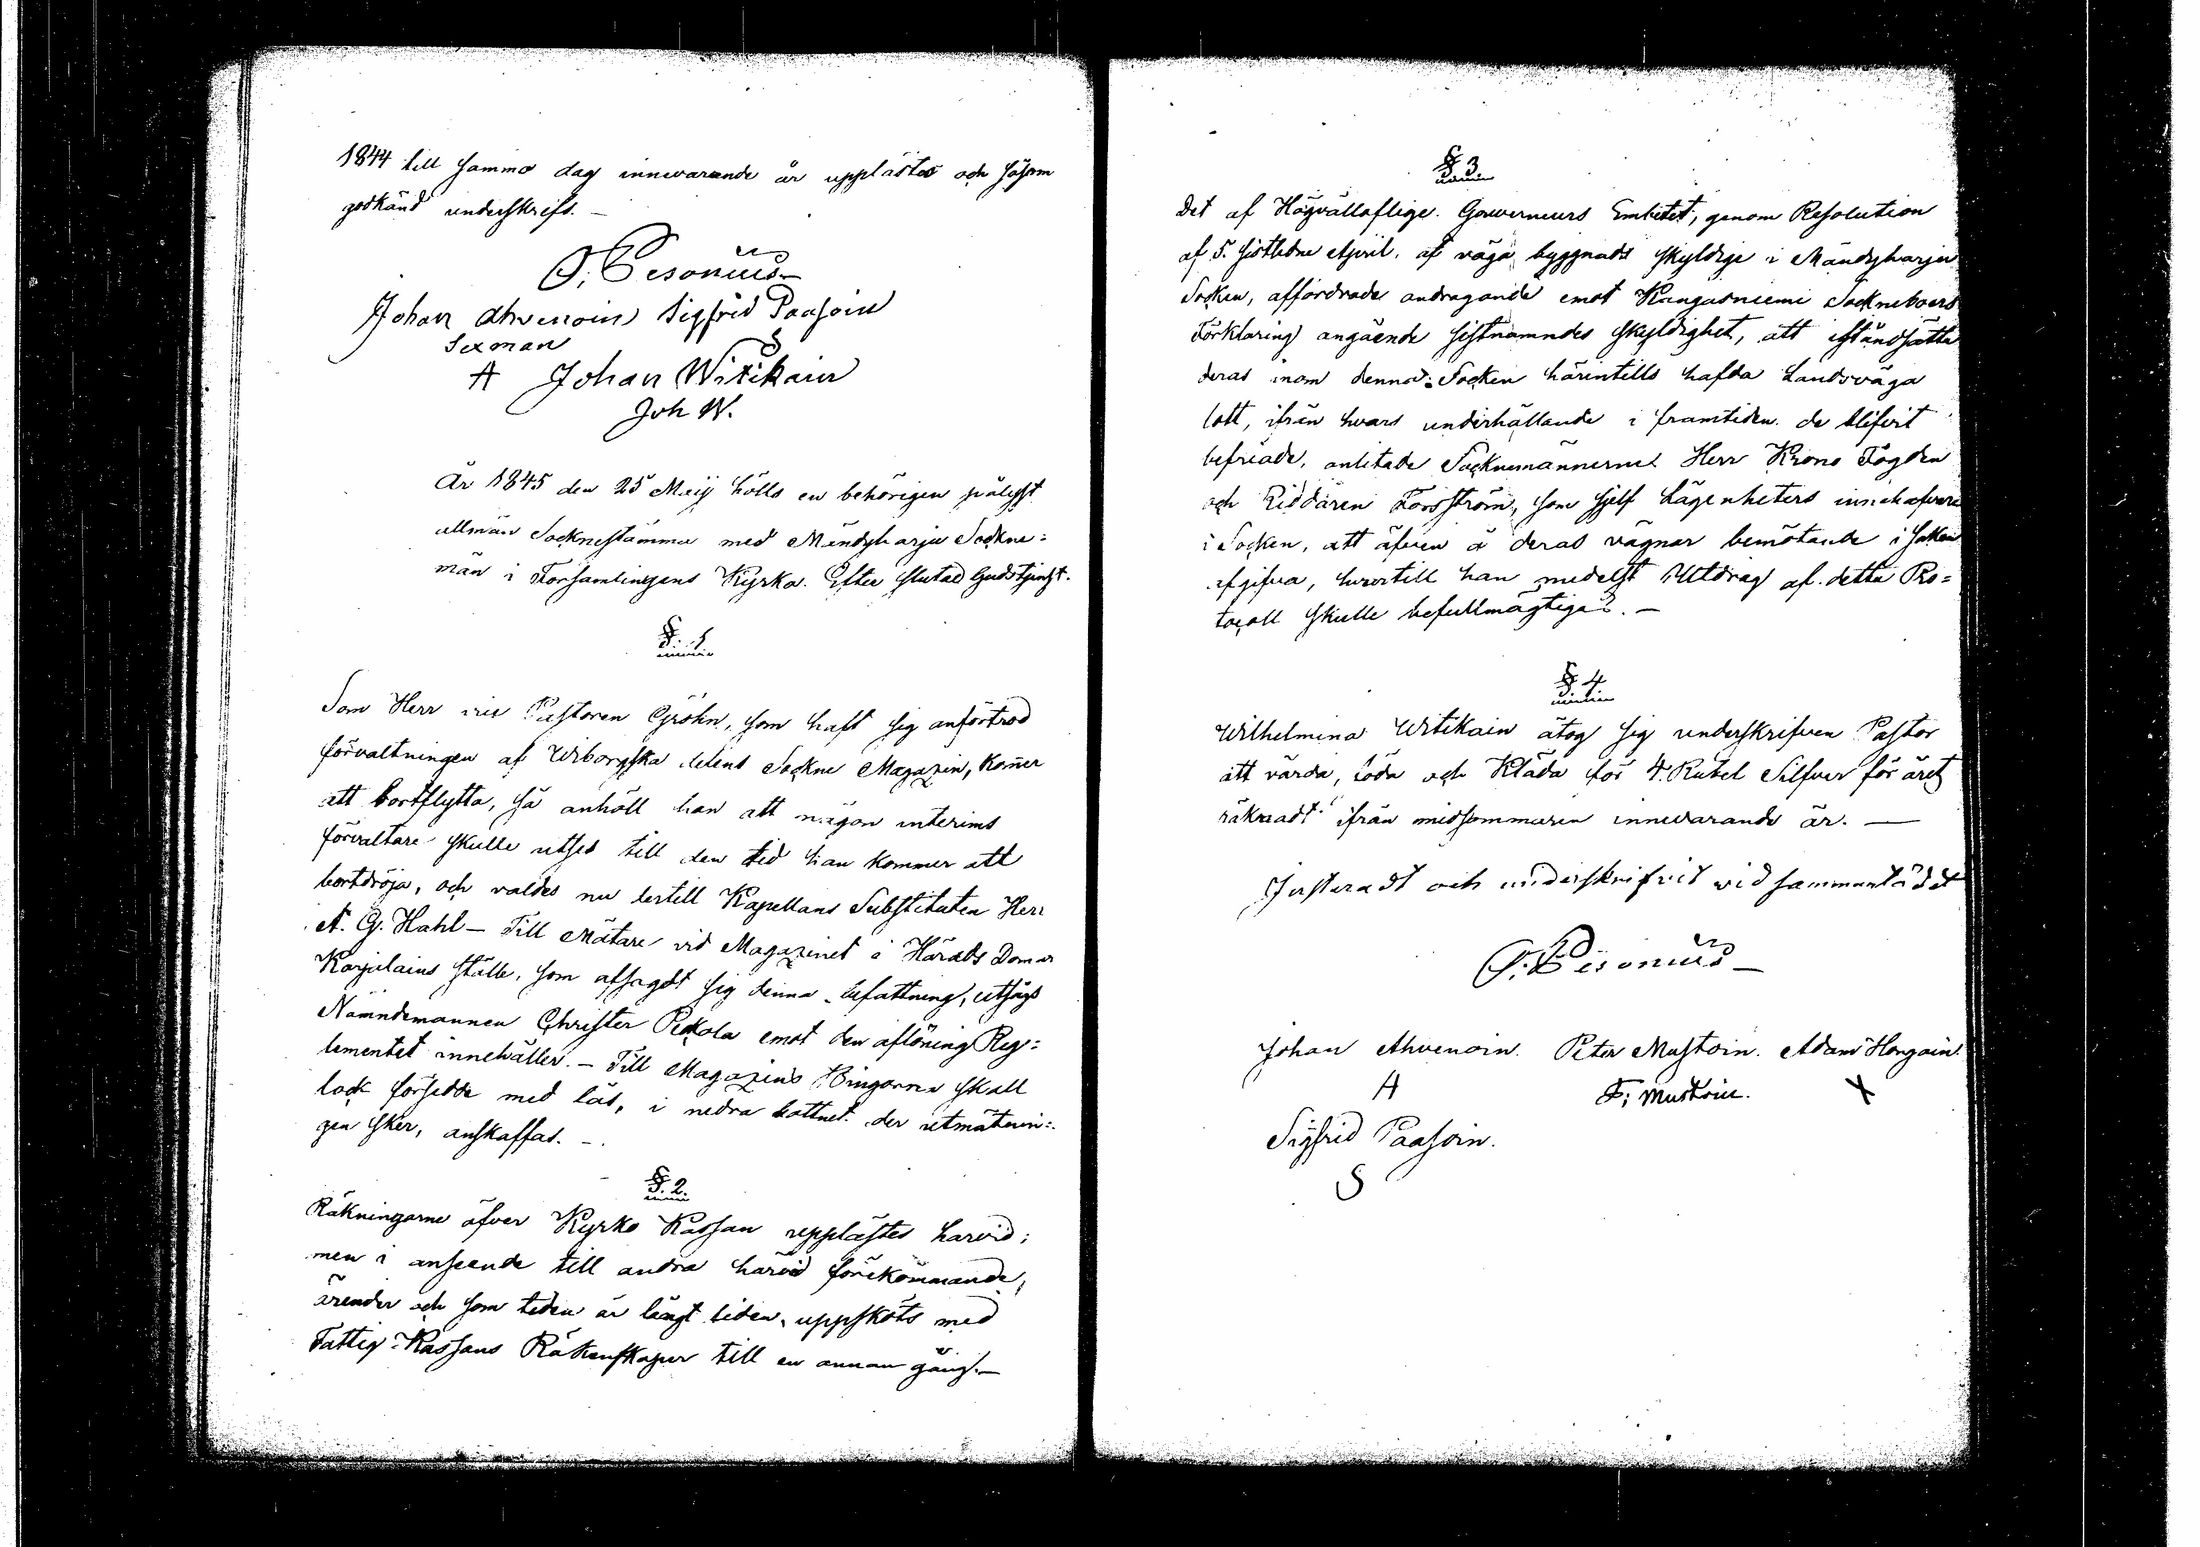 1844 till samma dag innevarande år upplästes och såsom
godkänd underskrefs. —
Johan Ahvenoin Sigfrid Paasoin
Sexman S
A Johan Witikain
Joh W.
År 1845 den 25 Maij hölls en behörigen pålyst
allmän Socknestämma med Mändyharju Sockne=
män i Församlingens Kyrka. Efter slutad Gudstjenst.
§. 1.
Som Herr vice Pastoren Gröhn, som haft sig anförtrod
förvaltningen af Wiborgska delens Sockne Magazin, kom̄er
att bortflytta, så anhöll han att någon interims
förvaltare skulle utses till den tid han kommer att
bortdröja, och valdes nu dertill Kapellans Substituten Herr
A. G. Hahl — Till Mätare vid Magazinet i Härads Domar
Karjalains ställe, som afsagdt sig denna befattning, utsågs
Nämndemannen Christer Pekola emot den aflöning Reg=
lementet innehåller. — Till Magazins Bingarna skall
lock försedde med lås, i nedra bottnet der utmätnin=
gen sker, anskaffas. —
§. 2.
Räkningarne öfver Kyrko Kassan upplästes harvid;
men i anseende till andra harvid förekommande
ärender och som tiden är långt liden, uppsköts med
Fattig-Kassans Räkenskaper till en annan gång. —
§ 3
Det af Högvällofliga Gouverneurs Embetet, genom Resolution
af 5. sistledne April, af väga byggnads skyldige i Mändyharju
Socken, affordrade andragande emot Kangasniemi Sockneboers
Förklaring angående sistnämndes skyldighet, att iståndsätta
deras inom denna Socken härintills hafda Landsväga
lott, ifrån hvars underhållande i framtiden de blifvit
befriade, anlitade Socknemännerne Herr Krono Fogden
och Riddaren Forsström, som sjelf Lägenheters innehafvare
i Socken, att äfven å deras vägnar bemötande i saken
afgifva, hvartill han medelst Utdrag af detta Pro=
tocoll skulle befullmägtigas. —
§ 4.
Wilhelmina Witikain åtog sig underskrifven Pastor
att vårda, föda och Kläda för 4. Rubel Silfver för året
räknadt ifrån midsommaren innevarande år. —
Justeradt och underskrifvit vid sammanträdet
Johan Ahvenoin. Peter Mustoin. Adam Hongain.
A P; Mustoin. X
Sigfrid Paasoin.
S